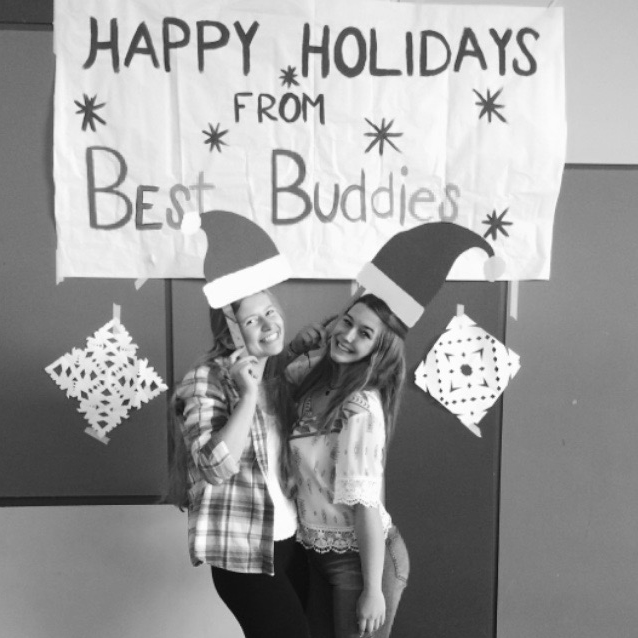 HAPPY HOLIDAYS
FROM
BEst Buddies